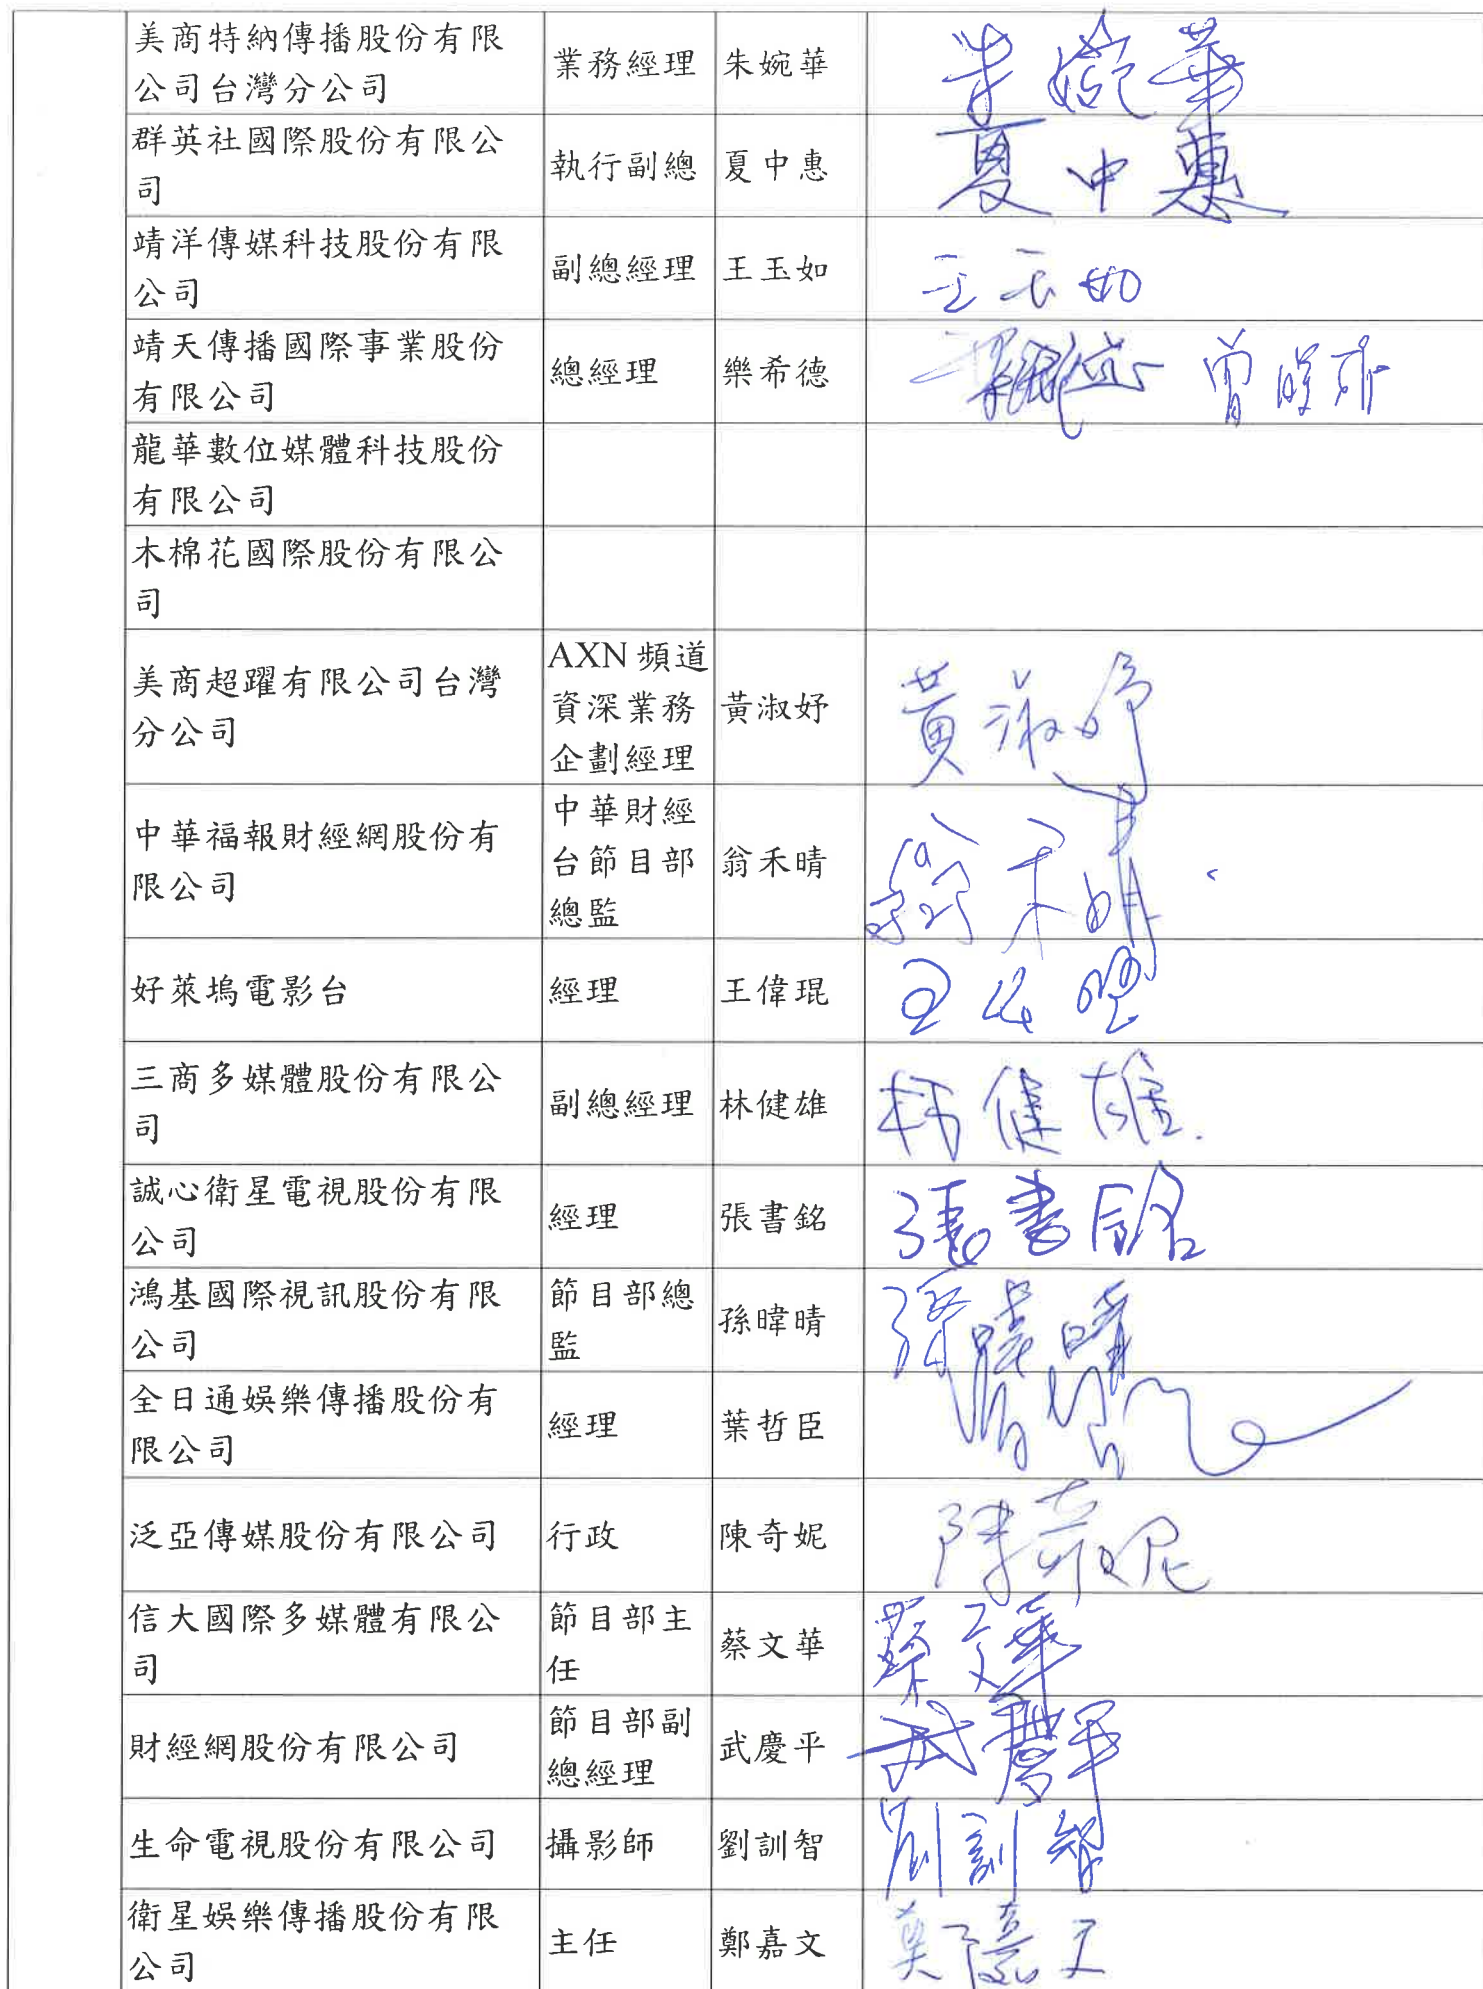 美商特納傳播股份有限
公司台灣分公司
業務經理
朱婉華
朱婉華
群英社國際股份有限公
司
執行副總
夏中惠
夏中惠
靖洋傳媒科技股份有限
公司
副總經理
王玉如
王玉如
靖天傳播國際事業股份
有限公司
總經理
樂希德
龍華數位媒體科技股份
有限公司
木棉花國際股份有限公
司
美商超躍有限公司台灣
分公司
AXN 頻道
資深業務
企劃經理
黃淑妤
黃淑妤
中華福報財經網股份有
限公司
中華財經
台節目部
總監
翁禾晴
翁禾晴
好萊塢電影台
經理
王偉琨
三商多媒體股份有限公
司
副總經理
林健雄
林健雄
誠心衛星電視股份有限
公司
經理
張書銘
張書銘
鴻基國際視訊股份有限
公司
節目部總
監
孫暐晴
全日通娛樂傳播股份有
限公司
經理
葉哲臣
泛亞傳媒股份有限公司
行政
陳奇妮
陳奇妮
信大國際多媒體有限公
司
節目部主
任
蔡文華
蔡文華
財經網股份有限公司
節目部副
總經理
武慶平
武慶平
生命電視股份有限公司
攝影師
劉訓智
劉訓智
衛星娛樂傳播股份有限
公司
主任
鄭嘉文